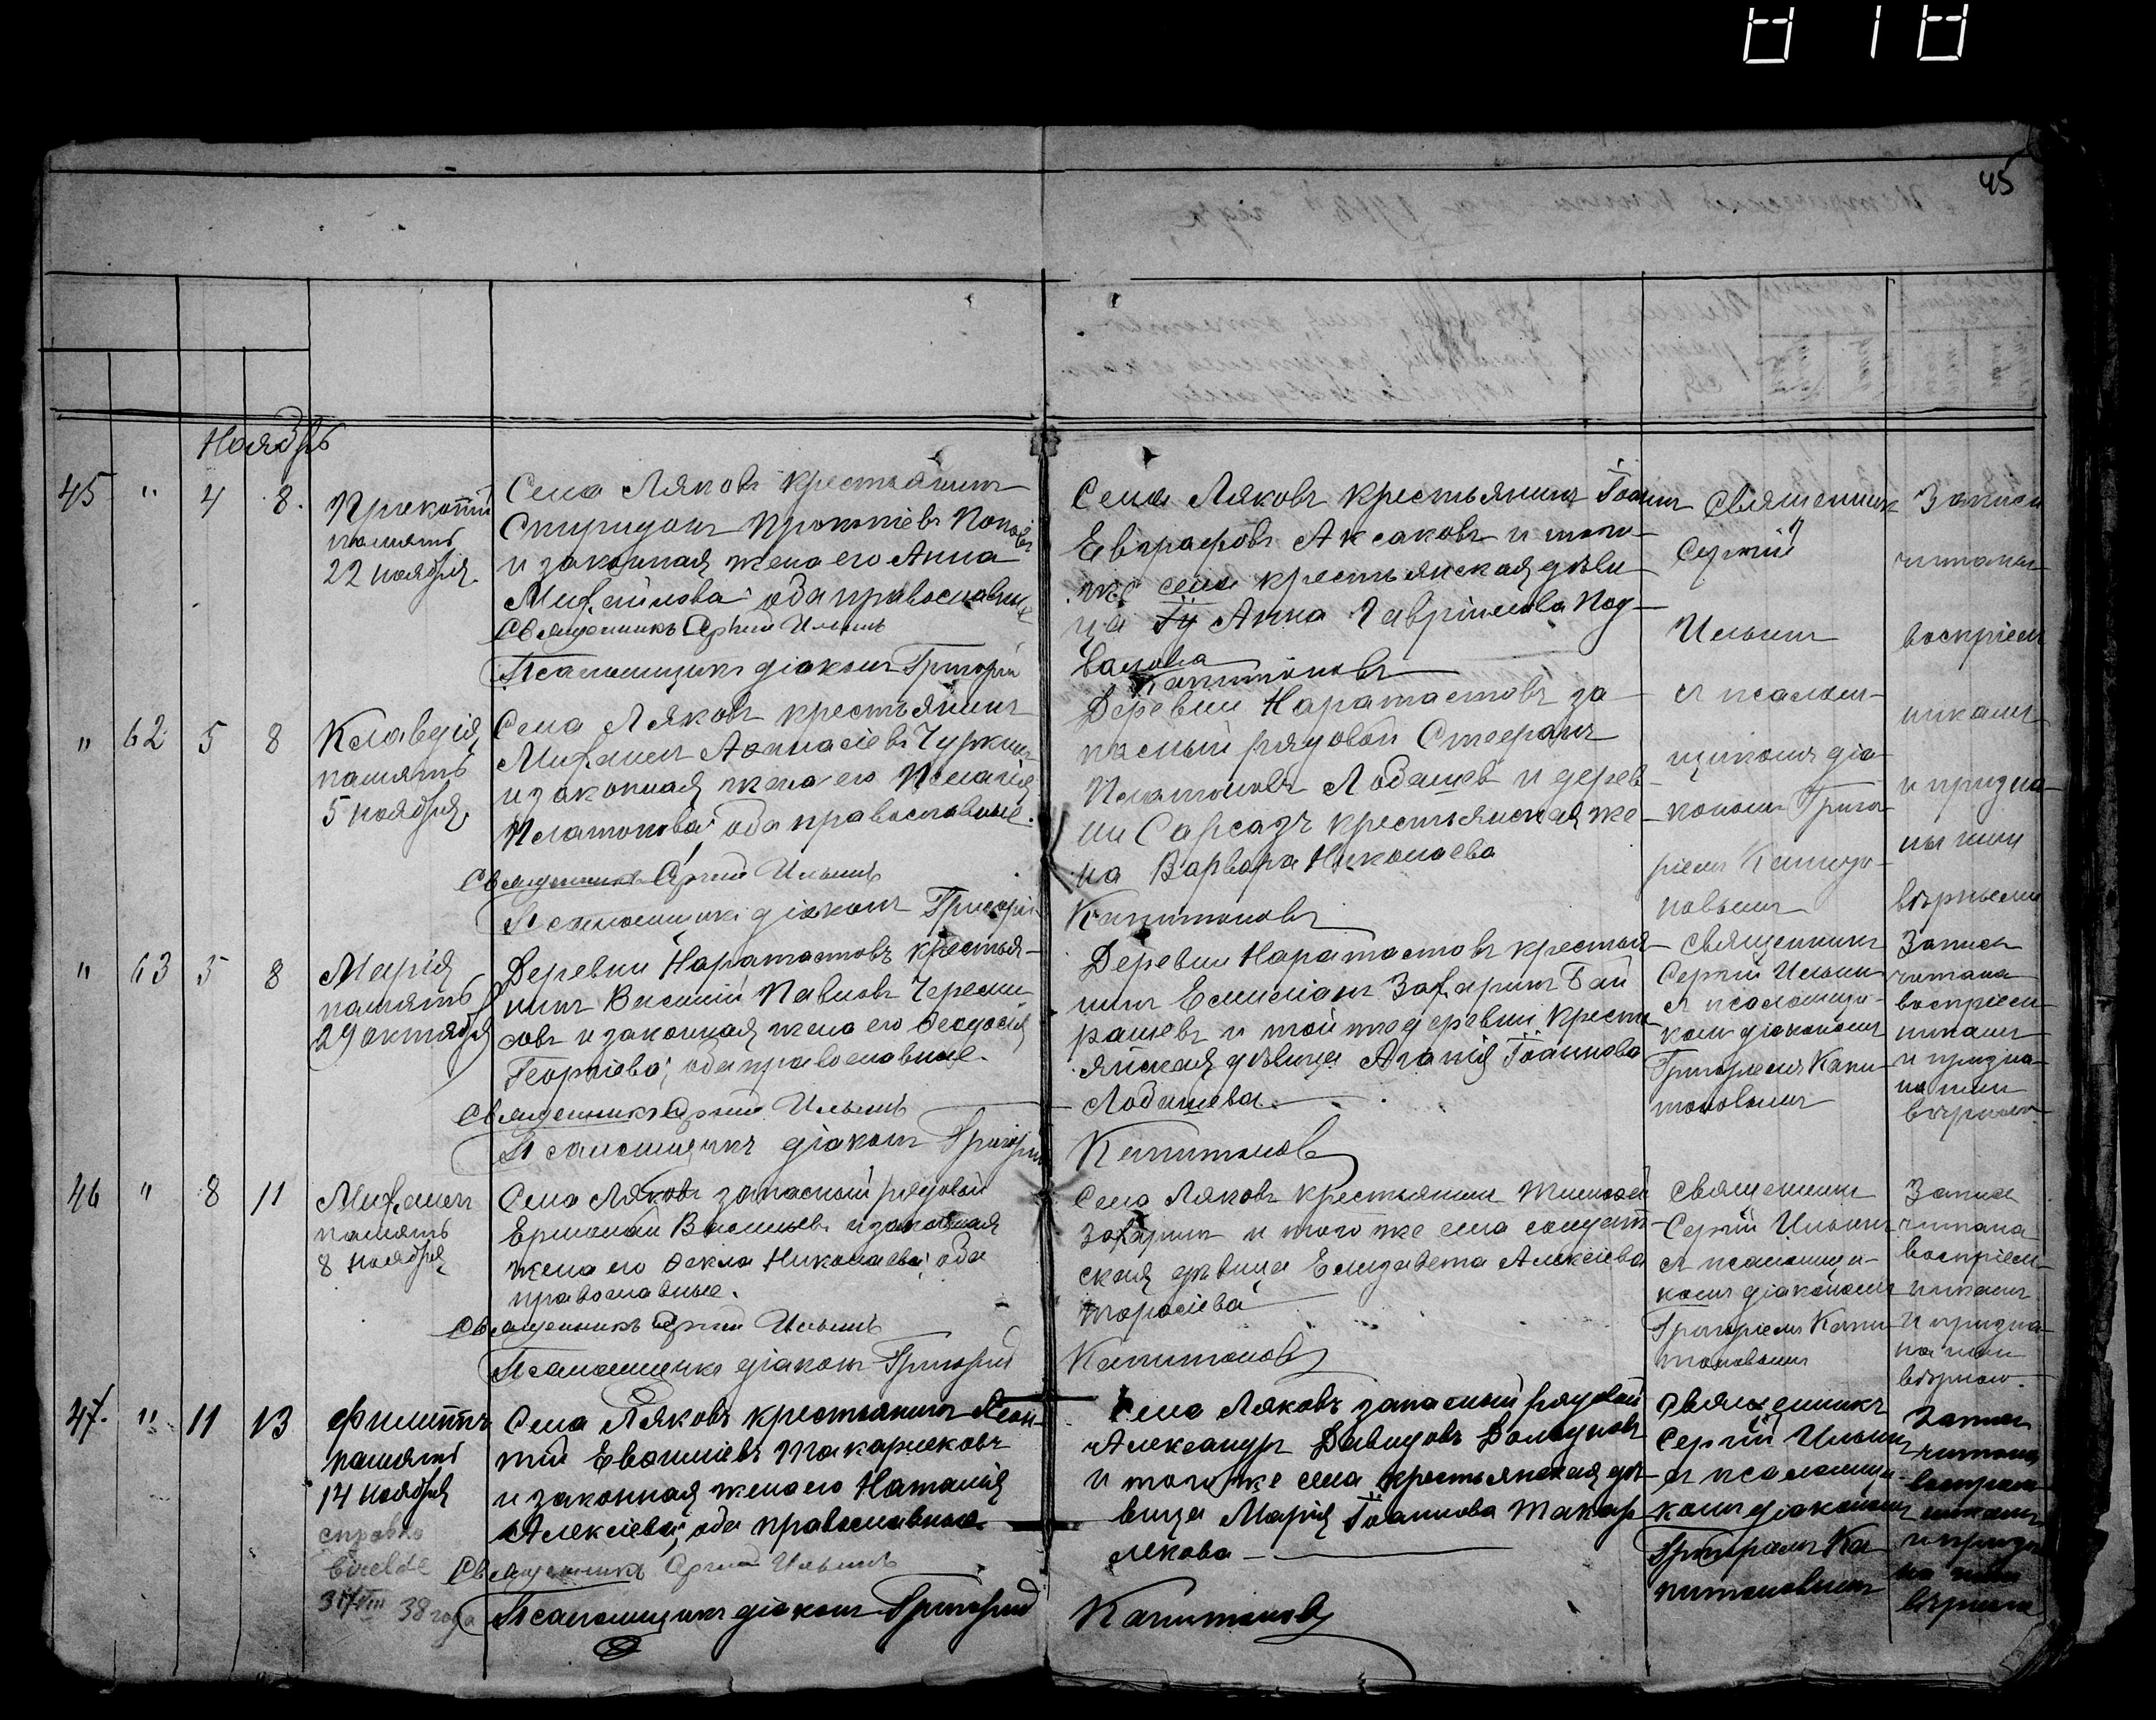 45
Ноябрь
45 " 4 8.
Прокопій
память
22 ноября.
Села Ляковъ крестьянинъ
Спиридонъ Прокопіевъ Поповъ
и законная жена его Анна
Михаилова; оба православные
Священникъ Сергій Ильинъ
Псаломщикъ діаконъ Григорій
Села Ляковъ крестьянинъ Іоаннъ
Евграфовъ Аксаковъ и того-
же села крестьянская дѣви-
ца Анна Гавріилова Под-
Капитоновъ
Священникъ
Сергій
Ильинъ
и псалом-
щикомъ діа-
кономъ Григо-
ріемъ Капито-
новымъ
Записи
читаны
воспріем-
никамъ
и призна-
ны ими
вѣрными
" 62 5 8
Клавдія,
память
5 ноября,
Села Ляковъ крестьянинъ
Михаилъ Аѳанасіевъ Чуркинъ
и законная жена его Пелагія
Платонова; оба православные.
Священникъ Сергій Ильинъ
Псаломщикъ діаконъ Григорій
Деревни Наратастовъ за-
пасный рядовой Стефанъ
Платоновъ Лобашев и дерев-
ни Сарсазъ крестьянская же-
на Варвара Николаева
Капитоновъ
" 63 5 8
Марія
память
29 октября
Деревни Наратастовъ крестья-
нинъ Василій Павловъ Череми-
совъ и законная жена его Ѳеодосія
Георгіева; оба православные.
Священникъ Сергій Ильинъ
Псаломщикъ діаконъ Григорій
Деревни Наратастовъ крестья-
нинъ Емиліанъ Захаринъ Бай
рашевъ и той же деревни кресть
янская дѣвица Агапія Іоаннова
Лобашева.
Капитоновъ
Священникъ
Сергій Ильин
и псаломщи-
комъ діакономъ
Григоріемъ Капи-
тоновымъ
Запись
читана
воспріем-
никамъ
и призна-
на ими
вѣрною.
46 " 8 11
Михаилъ
память
8 ноября
Села Ляковъ запасный рядовой
Ермолай Васильевъ и законная
жена его Ѳекла Николаева; оба
православные.
Священникъ Сергій Ильинъ
Псаломщикъ діаконъ Григорій
Села Ляковъ крестьянин Тимоѳей
Захаринъ и того же села солдат-
ская дѣвица Елизавета Алексіева
Капитоновъ
Священник
Сергій Ильинъ
и псаломщи-
комъ діакономъ
Григоріемъ Капи-
тоновымъ
Запись
читана
воспріем-
никамъ
и призна-
на ими
вѣрною.
47. " 11 13
Филиппъ
память
14 ноября
справка
38 года
Села Ляковъ крестьянинъ Леон-
тій Евѳиміевъ Макарцековъ
и законная жена его Наталія
Алексіева; оба православные.
Священникъ Сергій Ильинъ
Псаломщикъ діаконъ Григорій
Села Ляковъ запасный рядовой
Александръ Давидовъ
и того же села крестьянская дѣ-
вица Марія Іоаннова Макар-
Капитоновъ
Священникъ
Сергій Ильинъ
и псаломщи-
комъ діакономъ
Григоріемъ Ка-
питоновымъ
Запись
читана
воспріем-
никамъ
и призна-
на ими
вѣрною